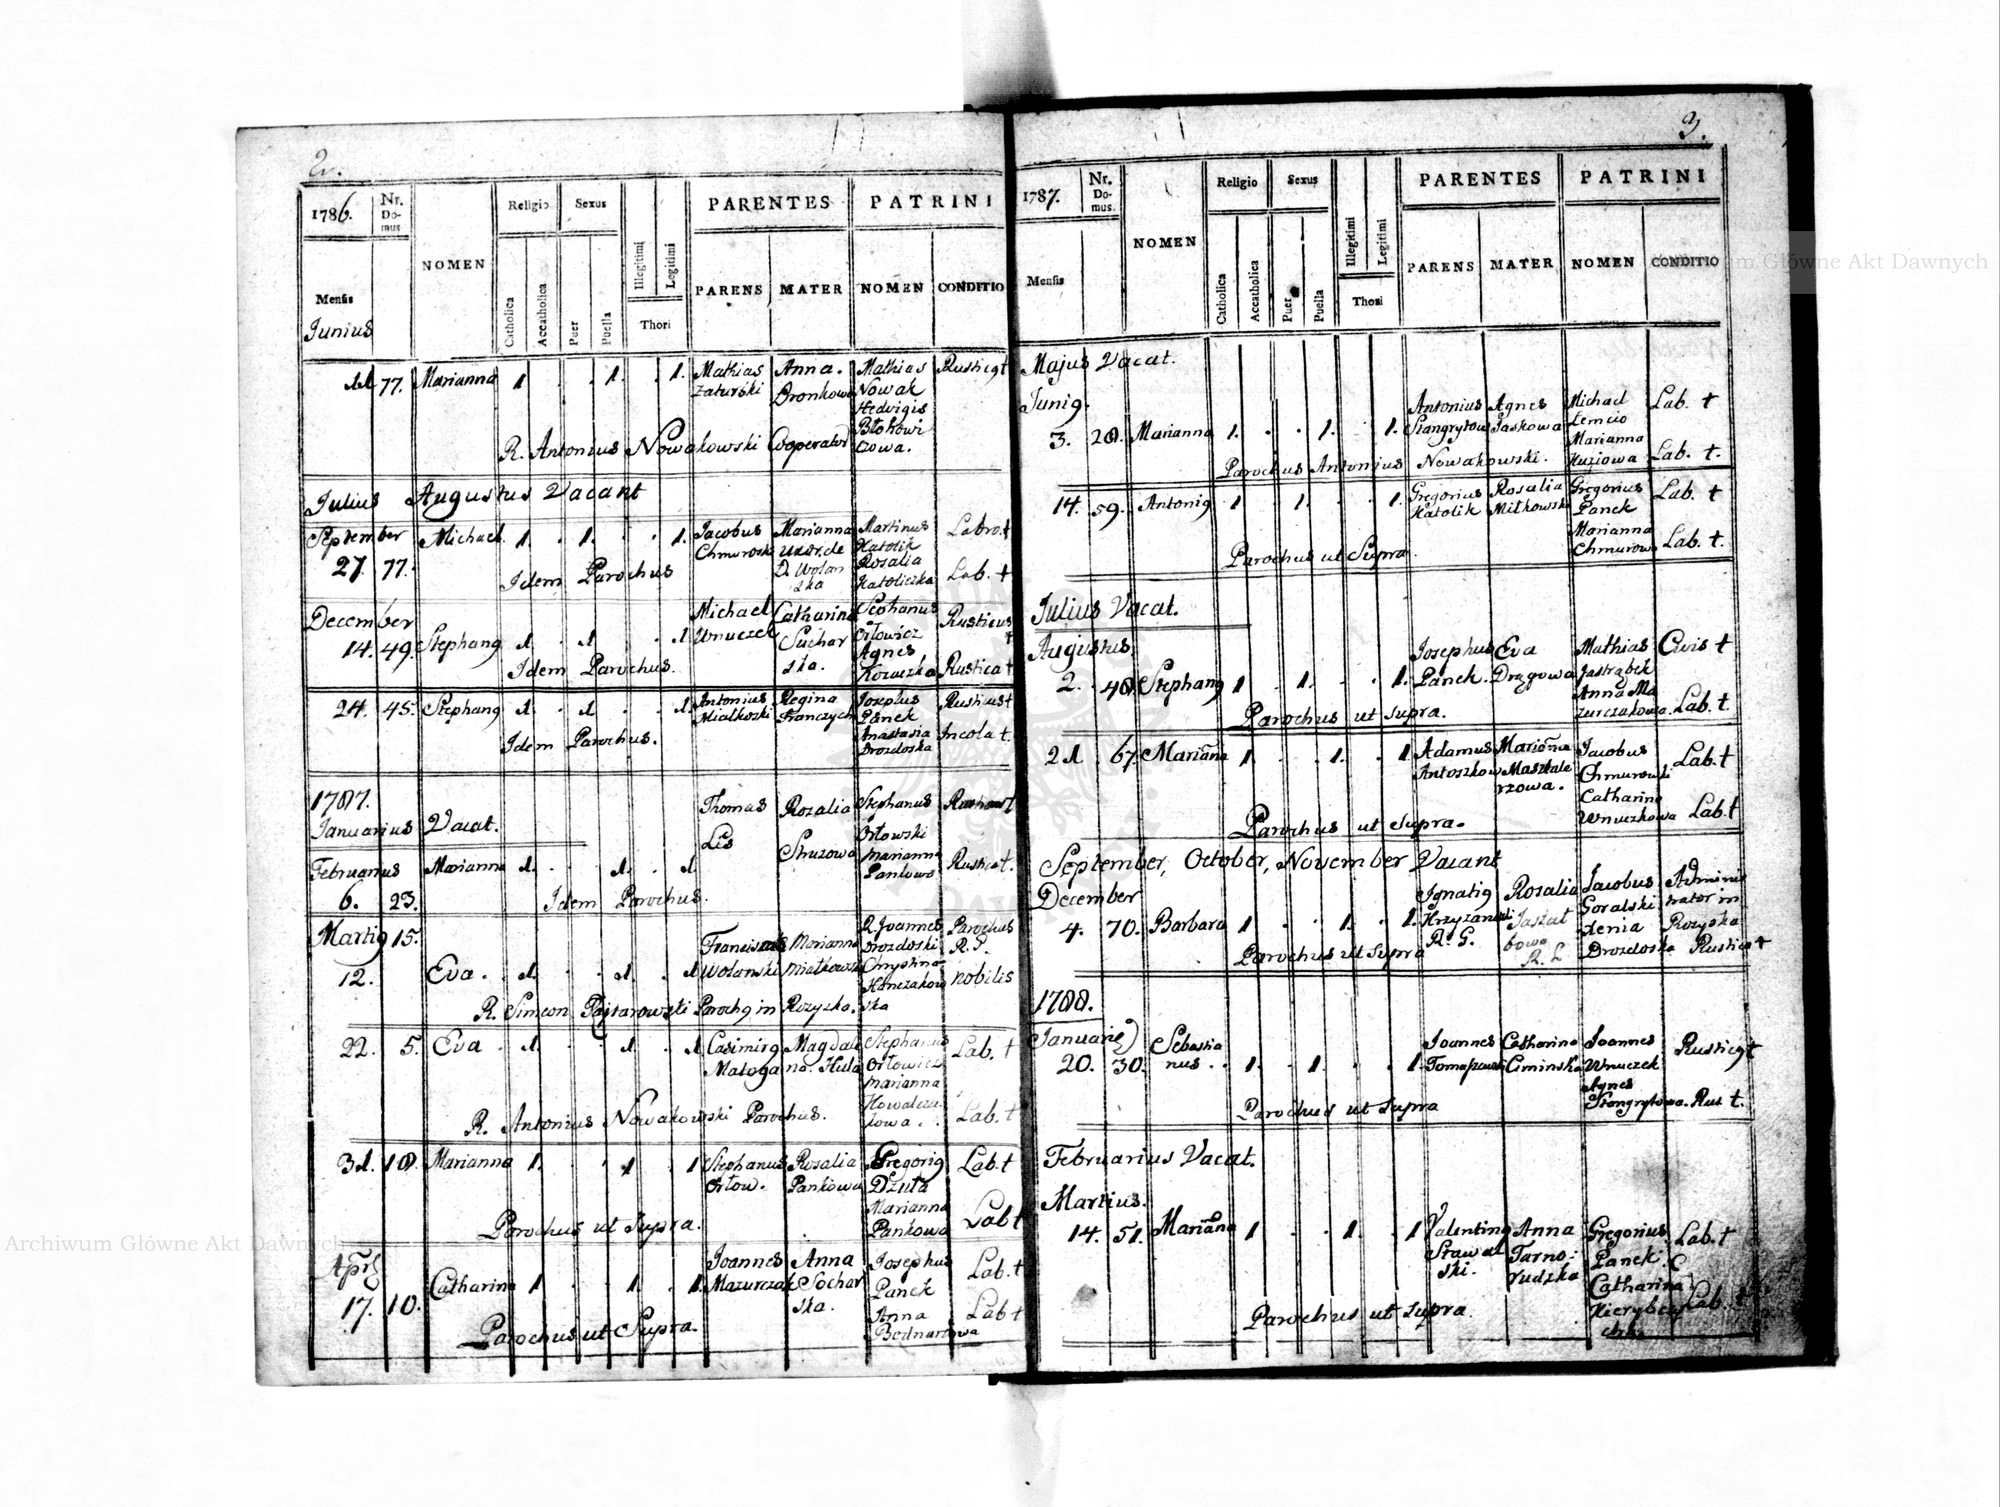 2.
1786. Nr. Domus NOMEN Religio Sexus Illegitimi Legitimi PARENTES PATRINI
Mensis Catholica Accatholica Puer Puella Thori PARENS MATER NOMEN CONDITIO
Junius
11 77. Marianna 1 . . 1. . 1. Mathias Anna. Mathias Rusticq †
Zaturski Bronkowa Nowak
Hedvigis
Błokowi
R. Antonius Nowakowski Cooperator czowa.
Julius Augustus Vacant
September Michael 1. . 1. . . 1. Jacobus Marianna Martinus Labro. †
27. 77. Chmuroski Uxor. de Katolik
D. Wolan Rosalia
Idem Parochus ska Katoliczka Lab. †
December Michael Catharina Stephanus Rusticus
14. 49. Stephanq 1 . 1 . . 1 Wnuczek Suchar Orłowicz †
ska. Agnes
Idem Parochus. Kozaczka Rustica †
24. 45. Stephanq 1 . 1 . . 1 Antonius Regina Josephus Rusticus †
Miałkoski Franczych Panek
Anastasia Incola †.
Idem Parochus. Drozdoska
1787.
Januarius Vacat. Thomas Rozalia Stephanus
Lis Orłowski
Marianna Rustica †.
Februarius Marianna 1. . . 1. . 1 Pankowa
6. 23. Idem Parochus.
Martiq 15. R. Joannes Parochus
Franciscus Marianna Drozdoski R. P.
12. Eva . . 1. . . 1. . 1 Wolanski Miałkowsz Chrystina nobilis
R. Simeon Parochq in Rozyska. ska
22. 5. Eva . 1 . . 1 . 1 Casimirq Magdale Stephanus Lab. †
Małoga na. Hula Orłowicz
Marianna
Kowalczu
R. Antonius Nowakowski Parochus. kowa. Lab. †
31. 18. Marianna 1. . . 1 . 1 Stephanus Rosalia Gregoriq Lab. †
Orłow. Pankowa Dziuła
Marianna
Parochus ut Supra. Pankowa Lab †
Joannes Anna Josephus Lab. †
Catharina 1 . . 1 . 1. Mazurczak Sochar Panek
17. 10. ska. Anna Lab †
Parochus ut Supra. Bednarzowa
3.
1787. Nr. Domus. NOMEN Religio Sexus Illegitimi Legitimi PARENTES PATRINI
Mensis Catholica Accatholica Puer Puella Thori PARENS MATER NOMEN CONDITIO
Majus Vacat.
Juniq. Antonius Agnes Michael Lab. †
3. 28. Marianna 1. . . 1. . 1. Stangrytow Jaskowa Lemcio
Marianna
Parochus Antonius Nowakowski. Kuziowa Lab. †.
14. 59. Antoniq 1 . 1. . . 1. Gregorius Rosalia Gregorius Lab. †
Katolik Miłkowska Panek
Marianna
Parochus ut Supra. Chmurowa Lab. †.
Julius Vacat.
Augustus Josephus Eva Mathias Civis †
2. 48. Stephanq 1 . 1. . . 1. Panek. Drągowa Jastrąbek
Anna Ma
Parochus ut Supra. zurczakowa. Lab. †.
21 67. Mariana 1 . . 1. . 1 Adamus Mariana Jacobus Lab. †
Antoszkow Masztale Chmurowski
rzowa. Catharina
Parochus ut Supra. Wnuczkowa Lab. †
September, October, November Vacant
December Ignatiq Rozalia Jacobus Adminis
4. 70. Barbara 1 . . 1. . 1. Krzyzanoski Jaszat Goralski trator in
R. G. bowa Rozyska
Parochus ut Supra R. L Drozdoska Rustica †
1788.
Januariq Sebastia Joannes Catharina Joannes Rusticq †
20. 30. nus . . 1. . 1. . . 1. Ciminska Wnuczek
Agnes
Parochus ut Supra Stangrytowa. Rus †.
Februarius Vacat.
Martius.
14. 51. Mariana 1 . . 1. . 1 Valentinq Anna Gregorius Lab. †
Stawal Tarno: Panek.
ski. rudzka Catharina
Parochus ut Supra. Lab. †
Archiwum Główne Akt Dawnych
Archiwum Główne Akt Dawnych